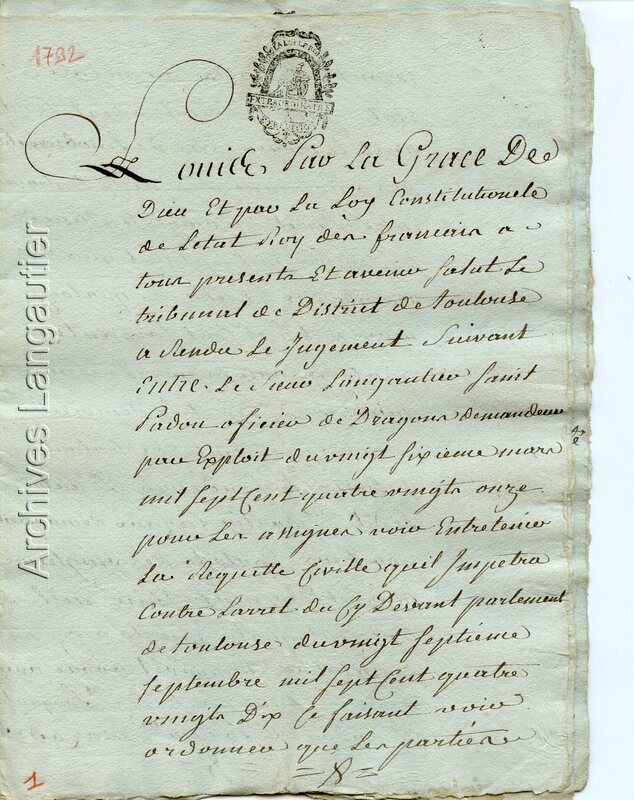 1792
LA LOI LE ROI
EXTRAORDINAIRE
Louis Par La Grace De
Dieu Et par La Loy Constitutionele
de Letat Roy des francais a
tous presents Et avenir Salut Le
tribunal de District de toulouse
a Rendu Le Jugement Suivant
Entre Le Sieur Langautier Saint
Padou oficier de Dragons demandeur
par Exploit du vingt sixieme mars
mil sept Cent quatre vingts onze
pour Les assignes voir Entretenir
La Requette Civille quil Impetra
Contre Larret du Cy Devant parlement
de toulouse du vingt septieme
septembre mil sept Cent quatre
vingts Dix Ce faisant voir
ordonner que Les parties
Archives Langautier
1